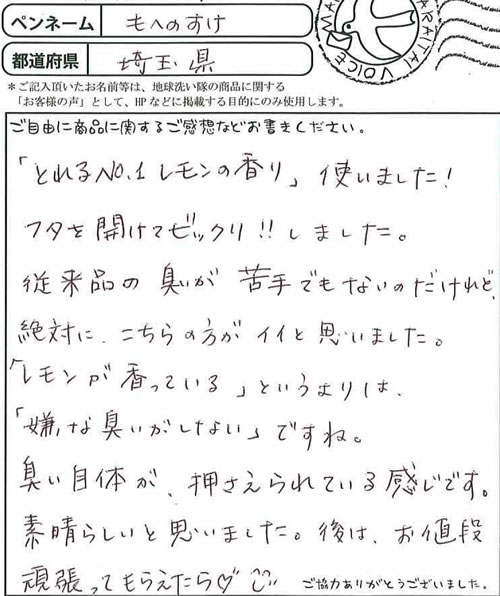 ペンネーム もへのすけ
都道府県 埼玉県
ARAITAI VOICE
*ご記入頂いたお名前等は、地球洗い隊の商品に関する
「お客様の声」として、HPなどに掲載する目的にのみ使用します。
ご自由に商品に関するご感想などお書きください。
「とれるNO.1レモンの香り」使いました!
フタを開けてビックリ!!しました。
従来品の臭いが苦手でもないのだけれど、
絶対に、こちらの方がイイと思いました。
「レモンが香っている」というよりは、
「嫌な臭いがしない」ですね。
臭い自体が、押さえられている感じです。
素晴らしいと思いました。後は、お値段
頑張ってもらえたら♡
ご協力ありがとうございました。